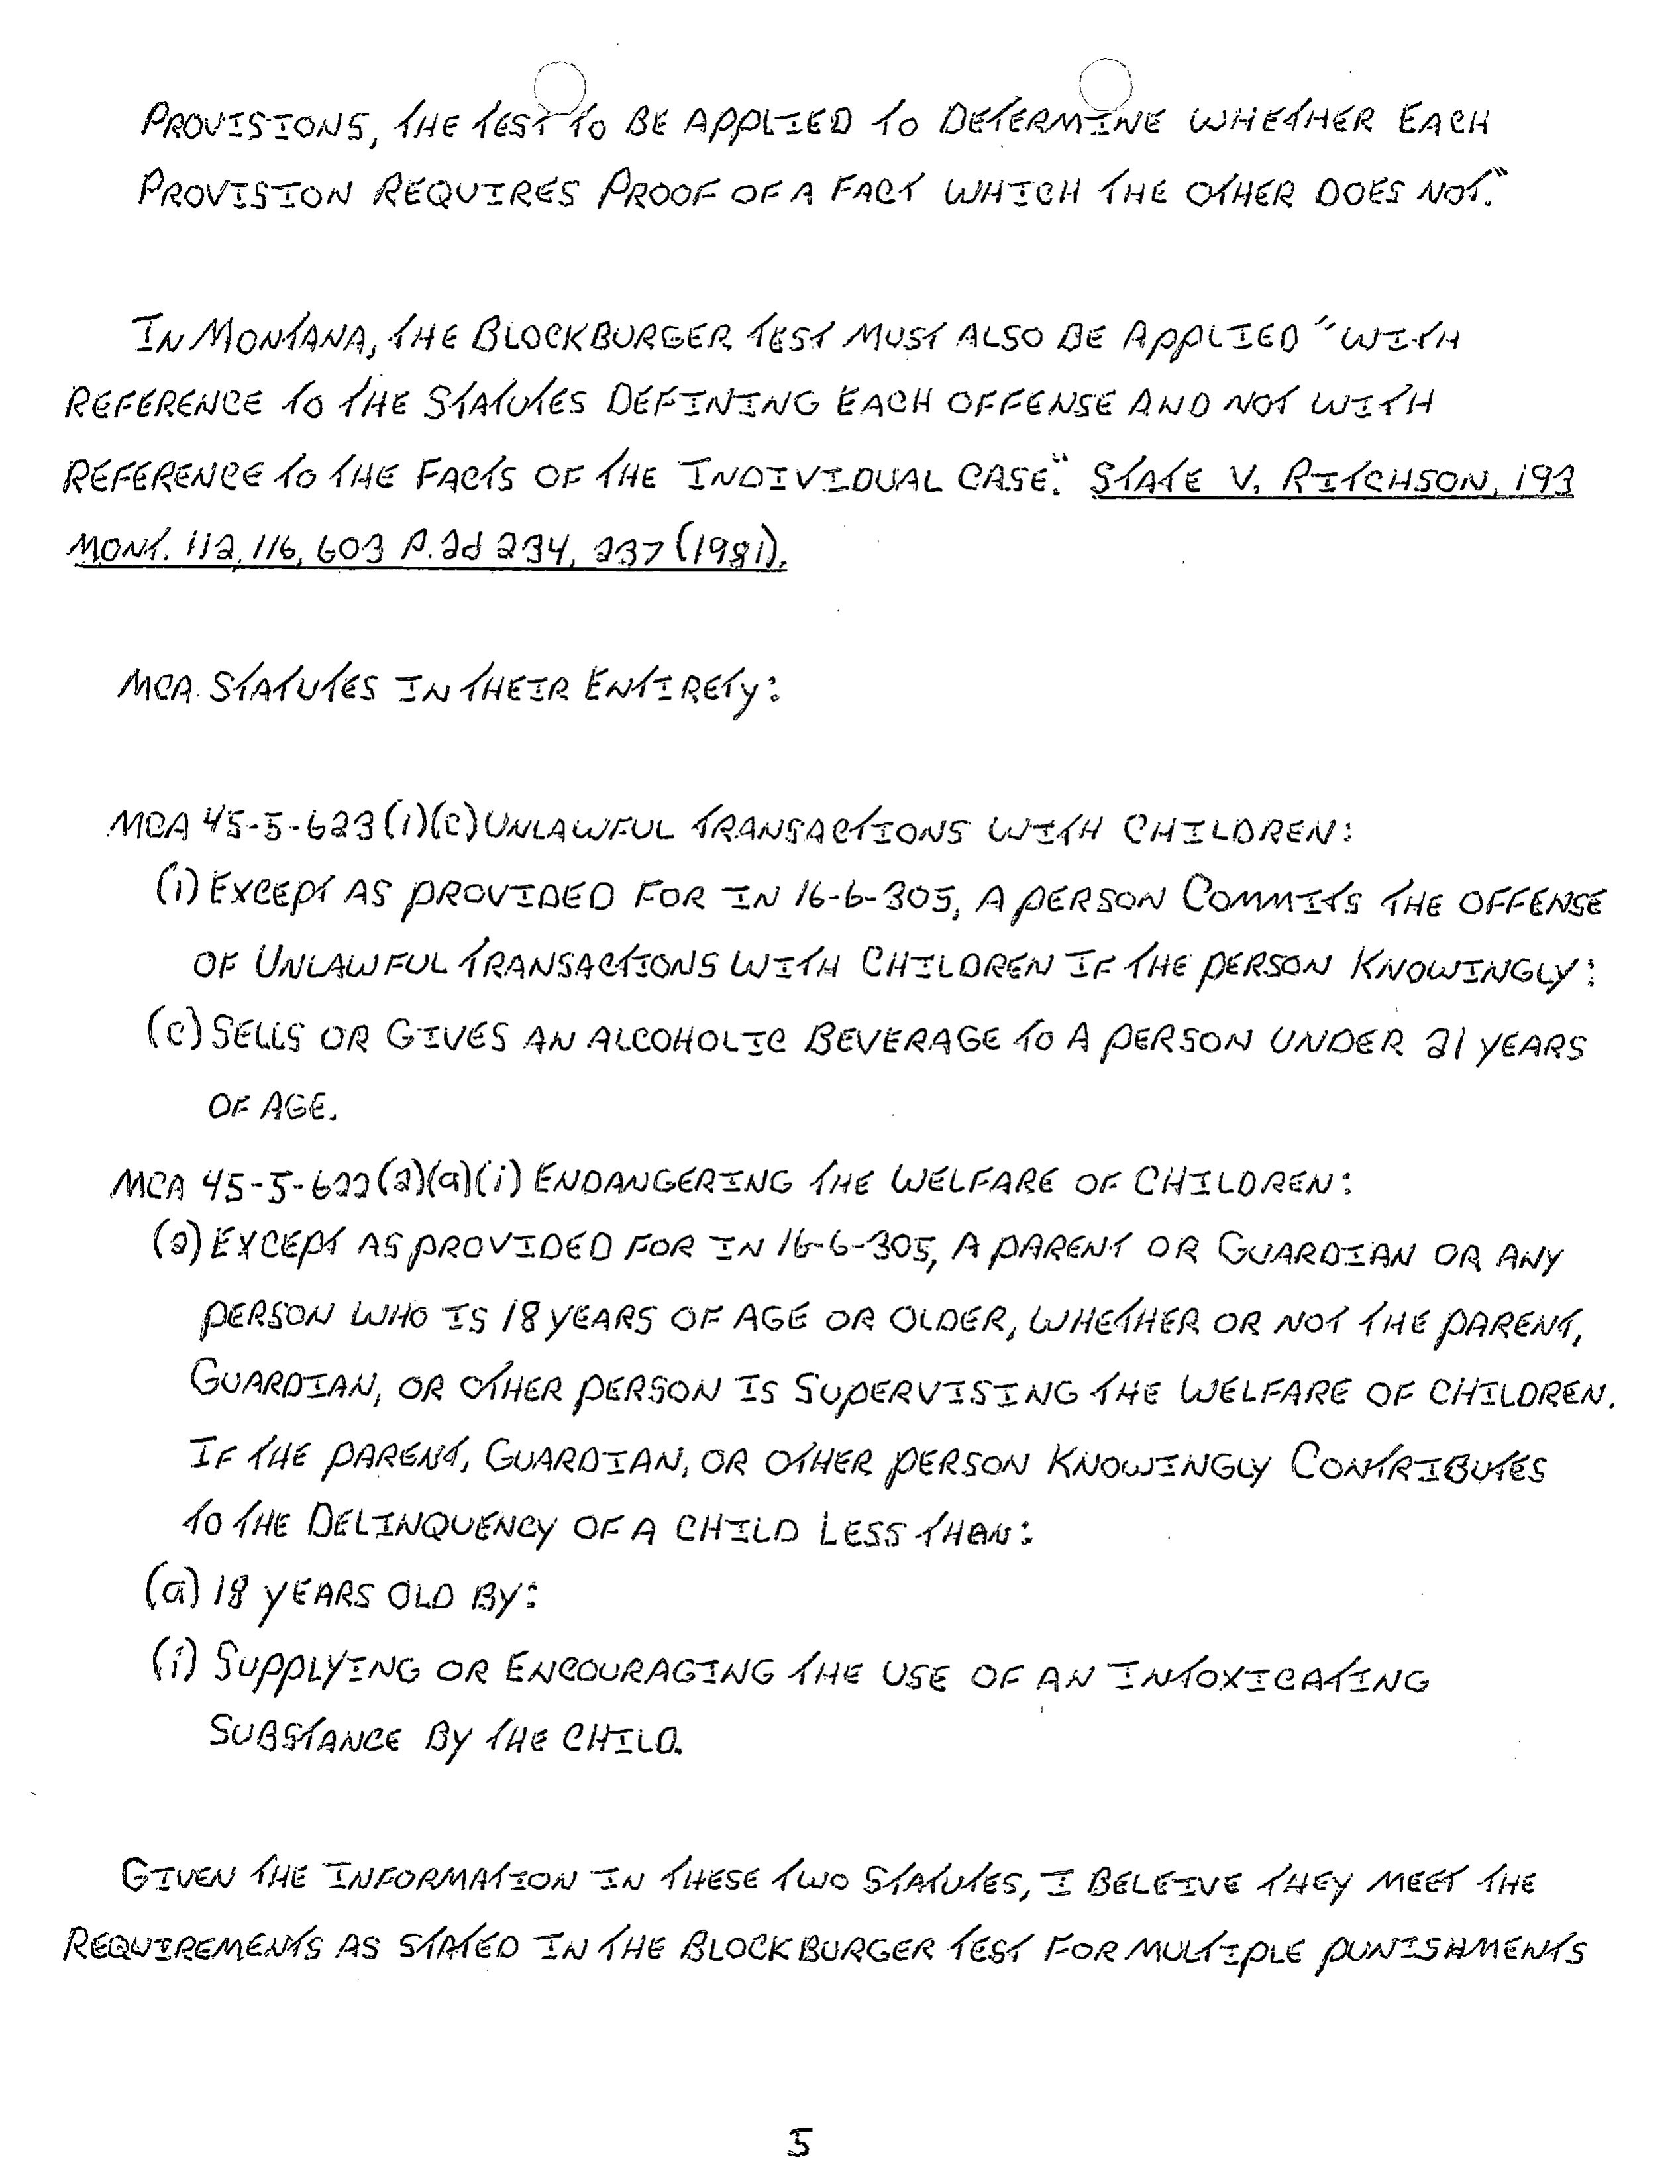 PROVISIONS, THE TEST TO BE APPLIED TO DETERMINE WHETHER EACH
PROVISION REQUIRES PROOF OF A FACT WHICH THE OTHER DOES NOT."
IN MONTANA, THE BLOCKBURGER TEST MUST ALSO BE APPLIED "WITH
REFERENCE TO THE STATUTES DEFINING EACH OFFENSE AND NOT WITH
REFERENCE TO THE FACTS OF THE INDIVIDUAL CASE." STATE V. RITCHSON, 193
MONT. 112, 116, 603 P.2d 234, 237 (1981).
MCA STATUTES IN THEIR ENTIRETY:
MCA 45-5-623(1)(c) UNLAWFUL TRANSACTIONS WITH CHILDREN:
(1) EXCEPT AS PROVIDED FOR IN 16-6-305, A PERSON COMMITS THE OFFENSE
OF UNLAWFUL TRANSACTIONS WITH CHILDREN IF THE PERSON KNOWINGLY:
(c) SELLS OR GIVES AN ALCOHOLIC BEVERAGE TO A PERSON UNDER 21 YEARS
OF AGE.
MCA 45-5-622(2)(a)(i) ENDANGERING THE WELFARE OF CHILDREN:
(2) EXCEPT AS PROVIDED FOR IN 16-6-305, A PARENT OR GUARDIAN OR ANY
PERSON WHO IS 18 YEARS OF AGE OR OLDER, WHETHER OR NOT THE PARENT,
GUARDIAN, OR OTHER PERSON IS SUPERVISING THE WELFARE OF CHILDREN.
IF THE PARENT, GUARDIAN, OR OTHER PERSON KNOWINGLY CONTRIBUTES
TO THE DELINQUENCY OF A CHILD LESS THAN:
(a) 18 YEARS OLD BY:
(i) SUPPLYING OR ENCOURAGING THE USE OF AN INTOXICATING
SUBSTANCE BY THE CHILD.
GIVEN THE INFORMATION IN THESE TWO STATUTES, I BELEIVE THEY MEET THE
REQUIREMENTS AS STATED IN THE BLOCKBURGER TEST FOR MULTIPLE PUNISHMENTS
5